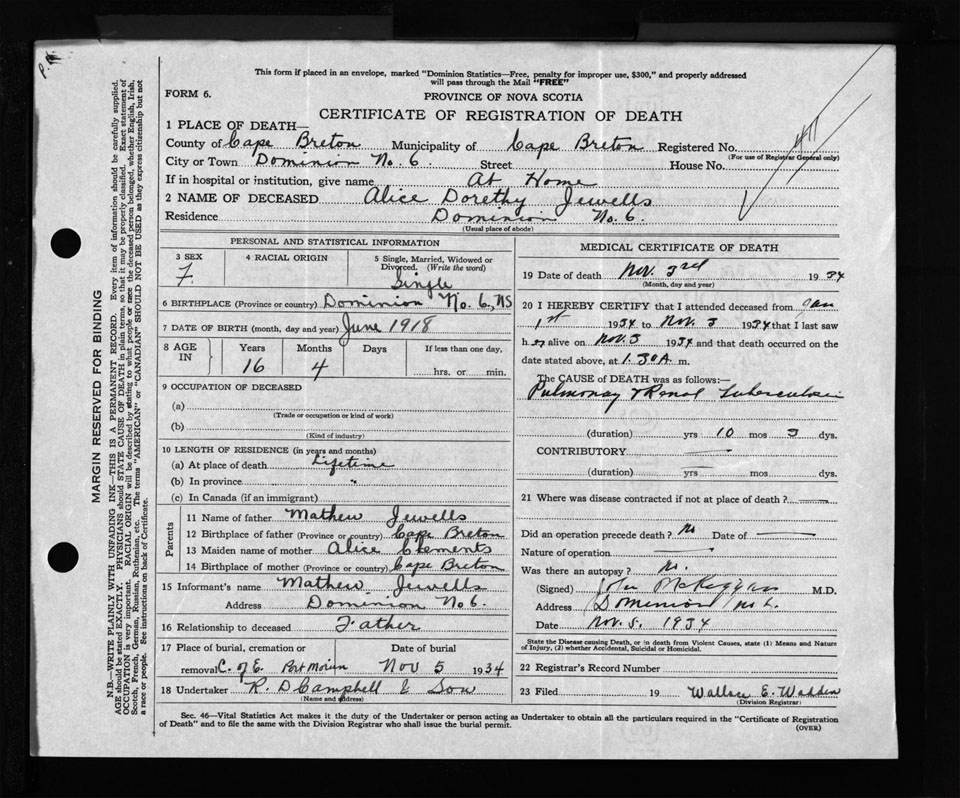 P.H.
This form if placed in an envelope, marked "Dominion Statistics—Free, penalty for improper use, $300," and properly addressed
will pass through the Mail "FREE"
FORM 6.
PROVINCE OF NOVA SCOTIA
CERTIFICATE OF REGISTRATION OF DEATH
1 PLACE OF DEATH—
County of Cape Breton Municipality of Cape Breton Registered No.
(For use of Registrar General only)
City or Town Dominion No. 6. Street House No.
If in hospital or institution, give name At Home
2 NAME OF DECEASED Alice Dorethy Jewells
Residence Dominion No. 6.
(Usual place of abode)
PERSONAL AND STATISTICAL INFORMATION
3 SEX 4 RACIAL ORIGIN 5 Single, Married, Widowed or
Divorced. (Write the word)
F. Single
6 BIRTHPLACE (Province or country) Dominion No. 6, NS
7 DATE OF BIRTH (month, day and year) June 1918
8 AGE IN Years Months Days If less than one day,
16 4 hrs. or min.
9 OCCUPATION OF DECEASED
(a)
(Trade or occupation or kind of work)
(b)
(Kind of industry)
10 LENGTH OF RESIDENCE (in years and months)
(a) At place of death Lifetime
(b) In province "
(c) In Canada (if an immigrant)
Parents
11 Name of father Mathew Jewells
12 Birthplace of father (Province or country) Cape Breton
13 Maiden name of mother Alice Clements
14 Birthplace of mother (Province or country) Cape Breton
15 Informant's name Mathew Jewells
Address Dominion No 6.
16 Relationship to deceased Father
17 Place of burial, cremation or Date of burial
removal C. of E. Port Morien Nov 5 1934
18 Undertaker R. D Campbell & Son
(Name and address)
MEDICAL CERTIFICATE OF DEATH
19 Date of death Nov. 3rd 1934
(Month, day and year)
20 I HEREBY CERTIFY that I attended deceased from Jan
1st 1934 to Nov. 3 1934 that I last saw
h er alive on Nov. 3 1934 and that death occurred on the
date stated above, at 1.30 A. m.
The CAUSE of DEATH was as follows:—
Pulmonay & Renal Tuberculosis
(duration) yrs 10 mos 3 dys.
CONTRIBUTORY
(duration) yrs mos dys.
21 Where was disease contracted if not at place of death?
Did an operation precede death? No Date of
Nature of operation
Was there an autopsy? No.
(Signed) John McKeggan M.D.
Address Dominion
Date Nov. 5. 1934
State the Disease causing Death, or in death from Violent Causes, state (1) Means and Nature
of Injury, (2) whether Accidental, Suicidal or Homicidal.
22 Registrar's Record Number
23 Filed 19 Wallace E. Wadden
(Division Registrar)
Sec. 46—Vital Statistics Act makes it the duty of the Undertaker or person acting as Undertaker to obtain all the particulars required in the "Certificate of Registration
of Death" and to file the same with the Division Registrar who shall issue the burial permit.
(OVER)
MARGIN RESERVED FOR BINDING
N.B.—WRITE PLAINLY WITH UNFADING INK—THIS IS A PERMANENT RECORD. Every item of information should be carefully supplied.
AGE should be stated EXACTLY. PHYSICIANS should STATE CAUSE OF DEATH in plain terms, so that it may be properly classified. Exact statement of
OCCUPATION is very important. RACIAL ORIGIN will be described by stating to what people or race the deceased person belonged, whether English, Irish,
Scotch, French, German, Russian, Ruthenian, etc. The terms "AMERICAN" or "CANADIAN" SHOULD NOT BE USED as they express citizenship but not
a race or people. See instructions on back of Certificate.